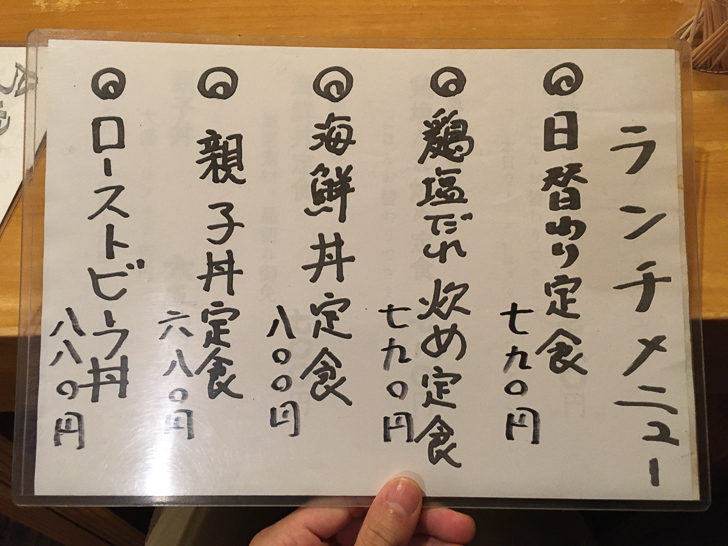 ランチメニュー
日替わり定食
七九〇円
鶏塩だれ炒め定食
七九〇円
海鮮丼定食
八〇〇円
親子丼定食
六八〇円
ローストビーフ丼
八八〇円